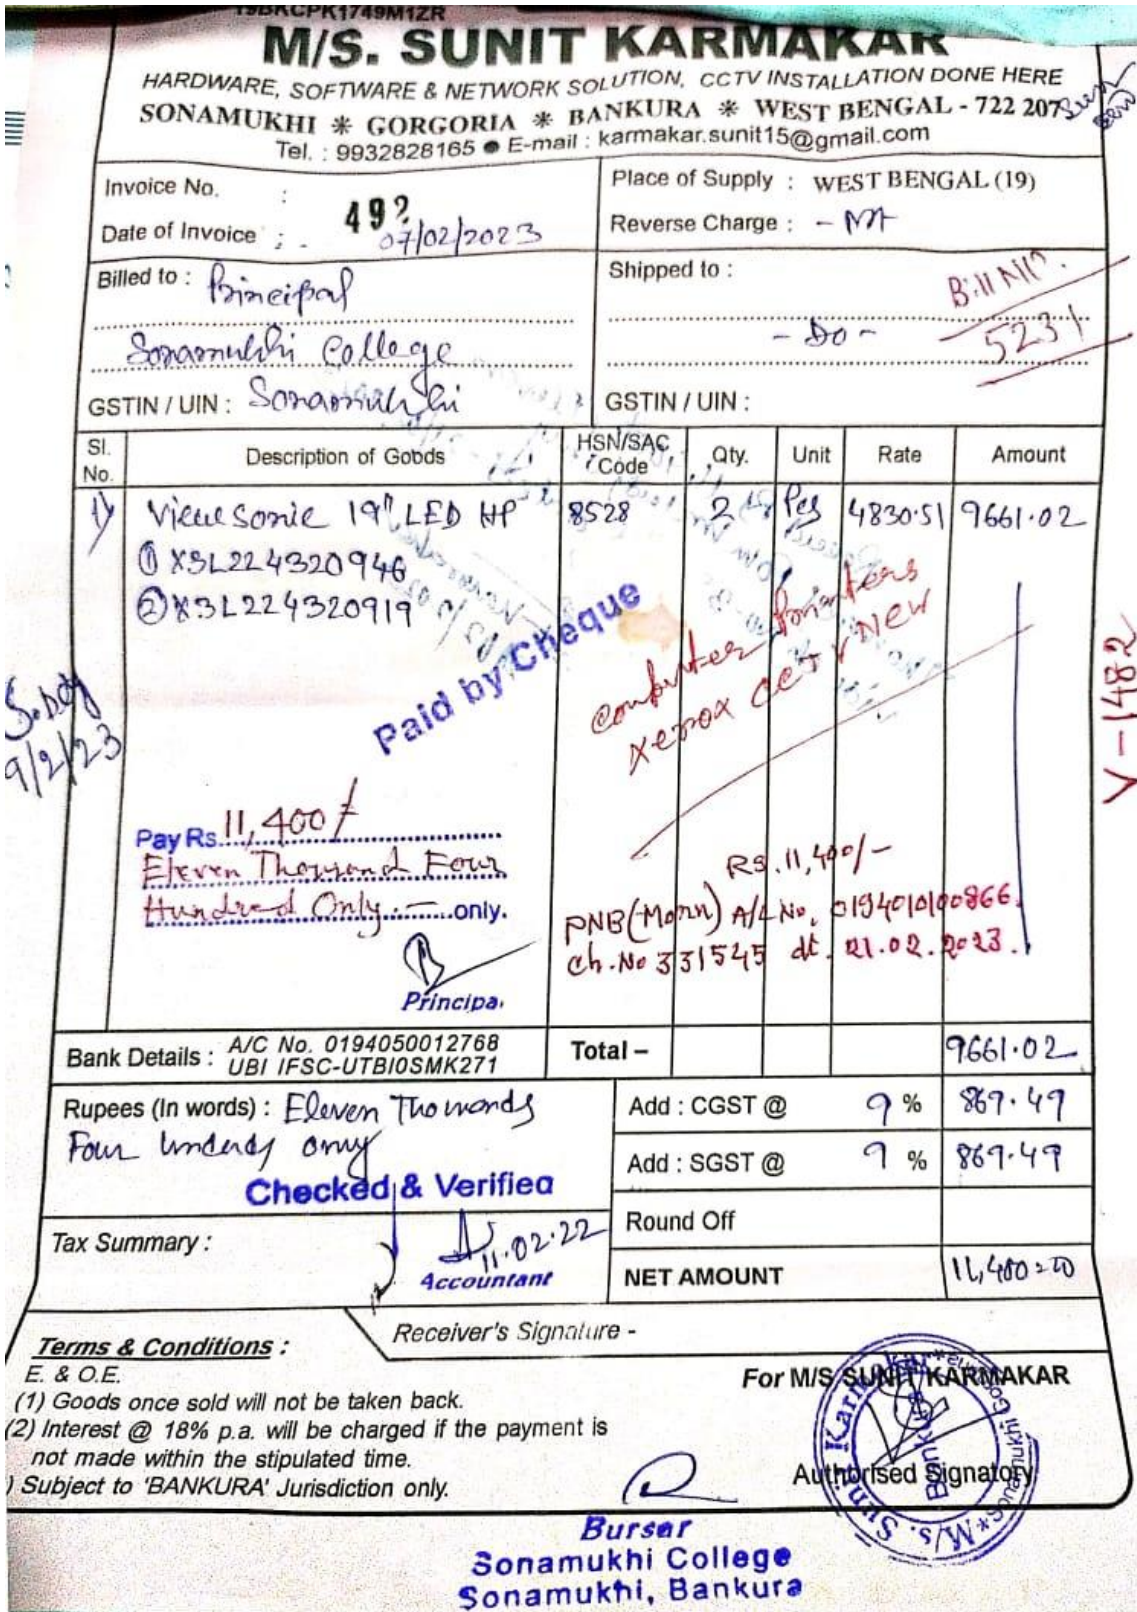 19BKCPK1749M1ZR
M/S. SUNIT KARMAKAR
HARDWARE, SOFTWARE & NETWORK SOLUTION, CCTV INSTALLATION DONE HERE
SONAMUKHI * GORGORIA * BANKURA * WEST BENGAL - 722 207
Tel. : 9932828165 ● E-mail : karmakar.sunit15@gmail.com
Invoice No. : 492
Date of Invoice : 07/02/2023
Place of Supply : WEST BENGAL (19)
Reverse Charge : - NA
Billed to : Principal
Sonamukhi College
GSTIN / UIN : Sonamukhi
Shipped to :
- Do -
GSTIN / UIN :
Bill No.
5231
Sl. No. Description of Goods HSN/SAC Code Qty. Unit Rate Amount
1) ViewSonic 19" LED HP 8528 2 Pcs 4830.51 9661.02
① X3L224320946
② X3L224320919
Paid by Cheque
Computer Printers
Xerox CCTV New
S. Dey
9/2/23
V-1482
Pay Rs. 11,400/-
Eleven Thousand Four
Hundred Only. — only.
Principal
Rs. 11,400/-
PNB (Main) A/c No. 0194010100866.
Ch. No 331545 dt. 21.02.2023.
Bank Details : A/C No. 0194050012768
UBI IFSC-UTBI0SMK271
Total – 9661.02
Rupees (In words) : Eleven Thousands
Four hundreds only
Add : CGST @ 9 % 869.49
Add : SGST @ 9 % 869.49
Round Off
NET AMOUNT 11,400=00
Checked & Verified
11.02.22
Accountant
Tax Summary :
Receiver's Signature -
Terms & Conditions :
E. & O.E.
(1) Goods once sold will not be taken back.
(2) Interest @ 18% p.a. will be charged if the payment is
not made within the stipulated time.
) Subject to 'BANKURA' Jurisdiction only.
For M/S SUNIT KARMAKAR
Authorised Signatory
M/s. Sunit Karmakar * Sonamukhi
Bankura
Bursar
Sonamukhi College
Sonamukhi, Bankura